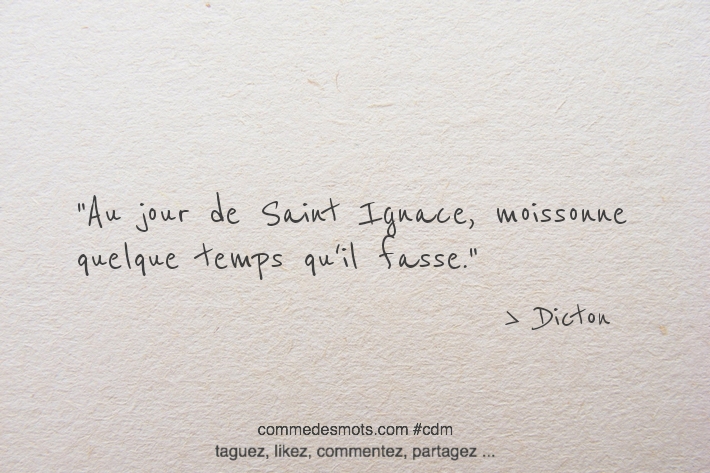 "Au jour de Saint Ignace, moissonne
quelque temps qu'il fasse."
> Dicton
commedesmots.com #cdm
taguez, likez, commentez, partagez ...